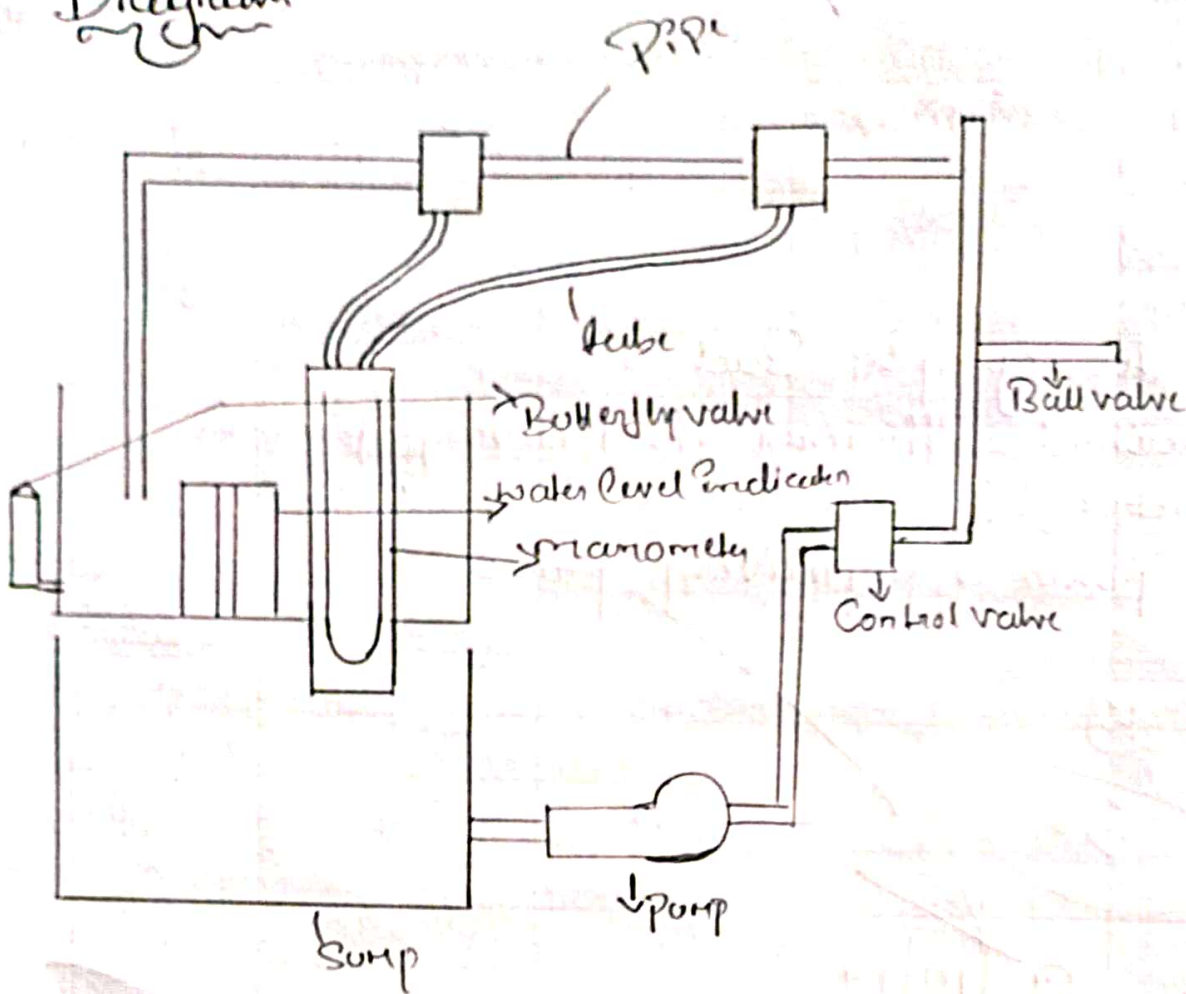 Diagram
Pipe
tube
Ball valve
Butterfly valve
water level indicator
manometer
Control valve
Pump
Sump